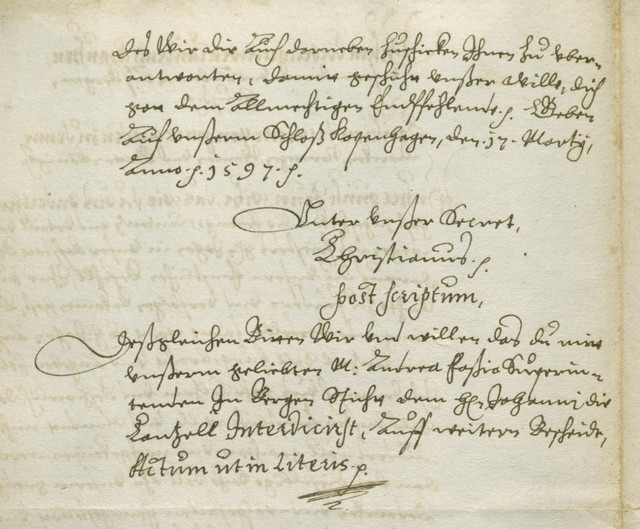 des Wir dir Auch darneben zuschicken Ihnen zu vber-
antworten, damit geschicht vnser Wille, dich
gott dem Allmechtigen Entpfehlendt. p. Geben
Auf vnserm Schloß Kopenhagen, den 17. Martij,
Anno. p. 1597. p.
Vnter vnser Secret,
Christianus. p.
post scriptum,
Deßgleichen Wir vnd willen das du mit
vnserm geliebten M: Andrea Foßio Superin-
tenden In Bergen Stifft dem Hr. Johanni die
Cantzell Interdicirst, Auff weitern Bescheide,
Actum ut in literis p.